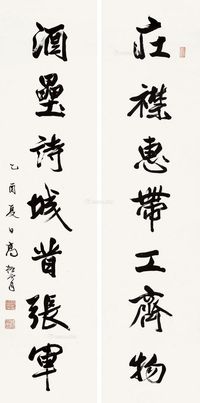 莊襟惠帶工齊物
酒壘詩城昔張軍
乙酉夏日 高